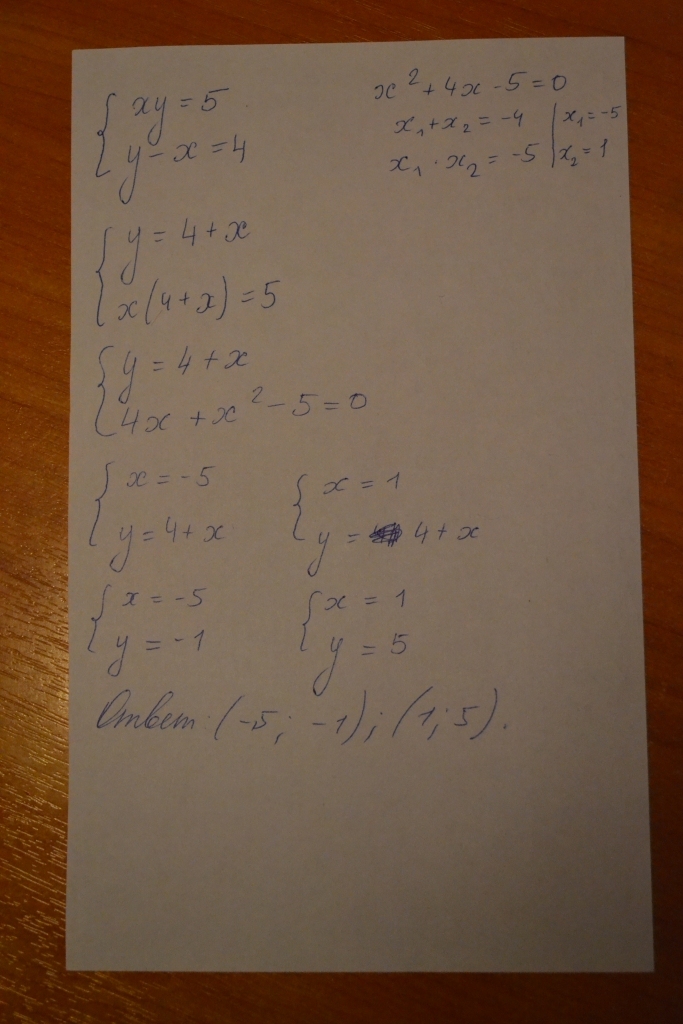 xy = 5
y - x = 4
x² + 4x - 5 = 0
x₁ + x₂ = -4 | x₁ = -5
x₁ · x₂ = -5 | x₂ = 1
y = 4 + x
x(4 + x) = 5
y = 4 + x
4x + x² - 5 = 0
x = -5
y = 4 + x
x = 1
y = 4 + x
x = -5
y = -1
x = 1
y = 5
Ответ: (-5; -1); (1; 5).